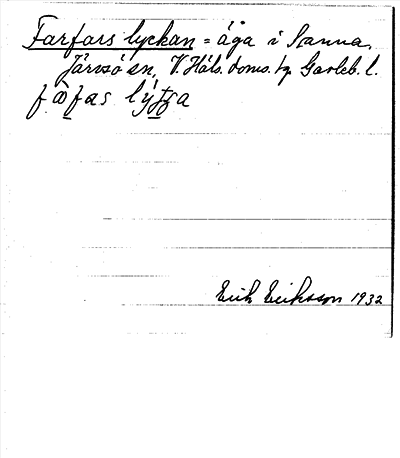 Farfars lyckan = äga i Sanna,
Järvsö sn, V. Häls. doms. tg Gävleb. l.
fàfas lýʈʂa
Erik Eriksson 1932